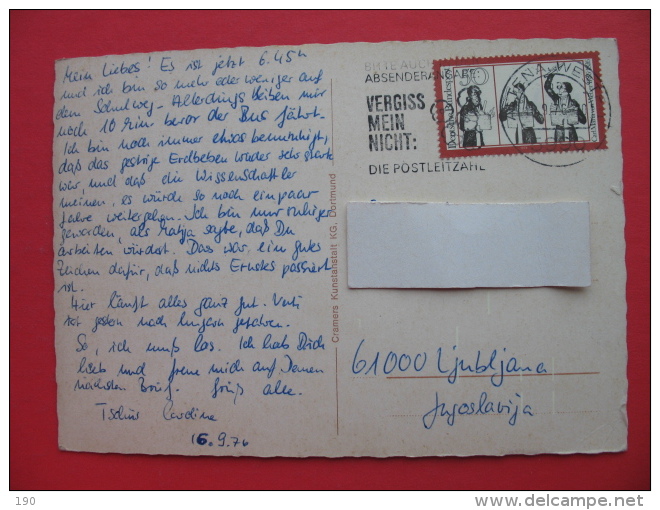 Mein Liebes! Es ist jetzt 6.45h
und ich bin so mehr oder weniger auf
dem Schulweg - Allerdings bleiben mir
noch 10 Min bevor der Bus fährt.
Ich bin noch immer etwas beunruhigt,
daß das gestrige Erdbeben wieder sehr stark
war, und daß die Wissenschaftler
meinen, es würde so noch ein paar
Jahre weitergehen. Ich bin nur ruhiger
geworden, als Matija sagte, daß Du
arbeiten würdest. Das war ein gutes
Zeichen dafür, daß nichts Ernstes passiert
ist.
Hier läuft alles ganz gut.
ist gestern nach Ungarn gefahren.
So, ich muß los. Ich hab Dich
lieb und freue mich auf Deinen
nächsten Brief. Grüß alle.
Tschüs Caroline
16.9.76
Cramers Kunstanstalt KG, Dortmund
BITTE AUCH
ABSENDERANGABE:
VERGISS
MEIN
NICHT:
DIE POSTLEITZAHL
50
Deutsche Bundespost
61000 Ljubljana
Jugoslavija
190
delcampe.net